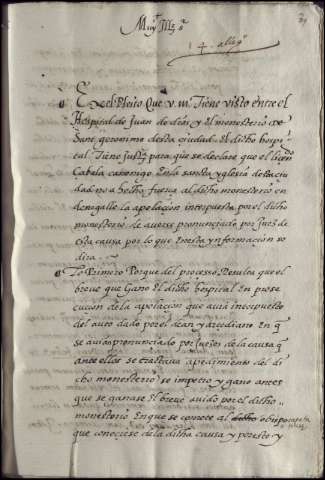 Muy Illes
14. allegn
En el Pleito Que v. m. Tiene visto entre el
Hospital de Juan de dios y el monesterio de
Sant geronimo desta çiudad. El dicho hospi-
tal. Tiene Justiª para que se declare que el liçendo
Cabeça canonigo En la sancta yglesia desta çiu
dad no a hecho fuerça al dicho monesterio en
denegalle la apelaçion interpuesta por el dicho
monesterio de averse pronunçiado por Juez de
esta causa por lo que En esta ynformaçion se
dira.
Lo Primero Porque del proçesso Resulta que el
breve que Gano El dicho hospital En prose
cuçion de la apelaçion que avia interpuesto
del auto dado por el dean y arçediano En q
se avian pronunçiado por Juezes de la causa q
ante ellos se trataria a pedimiento del di
cho monesterio se impetro y gano antes
que se ganase El breve avido por el dicho
monesterio En que se comete al obispo
que conoçiese de la dicha causa y puesto q